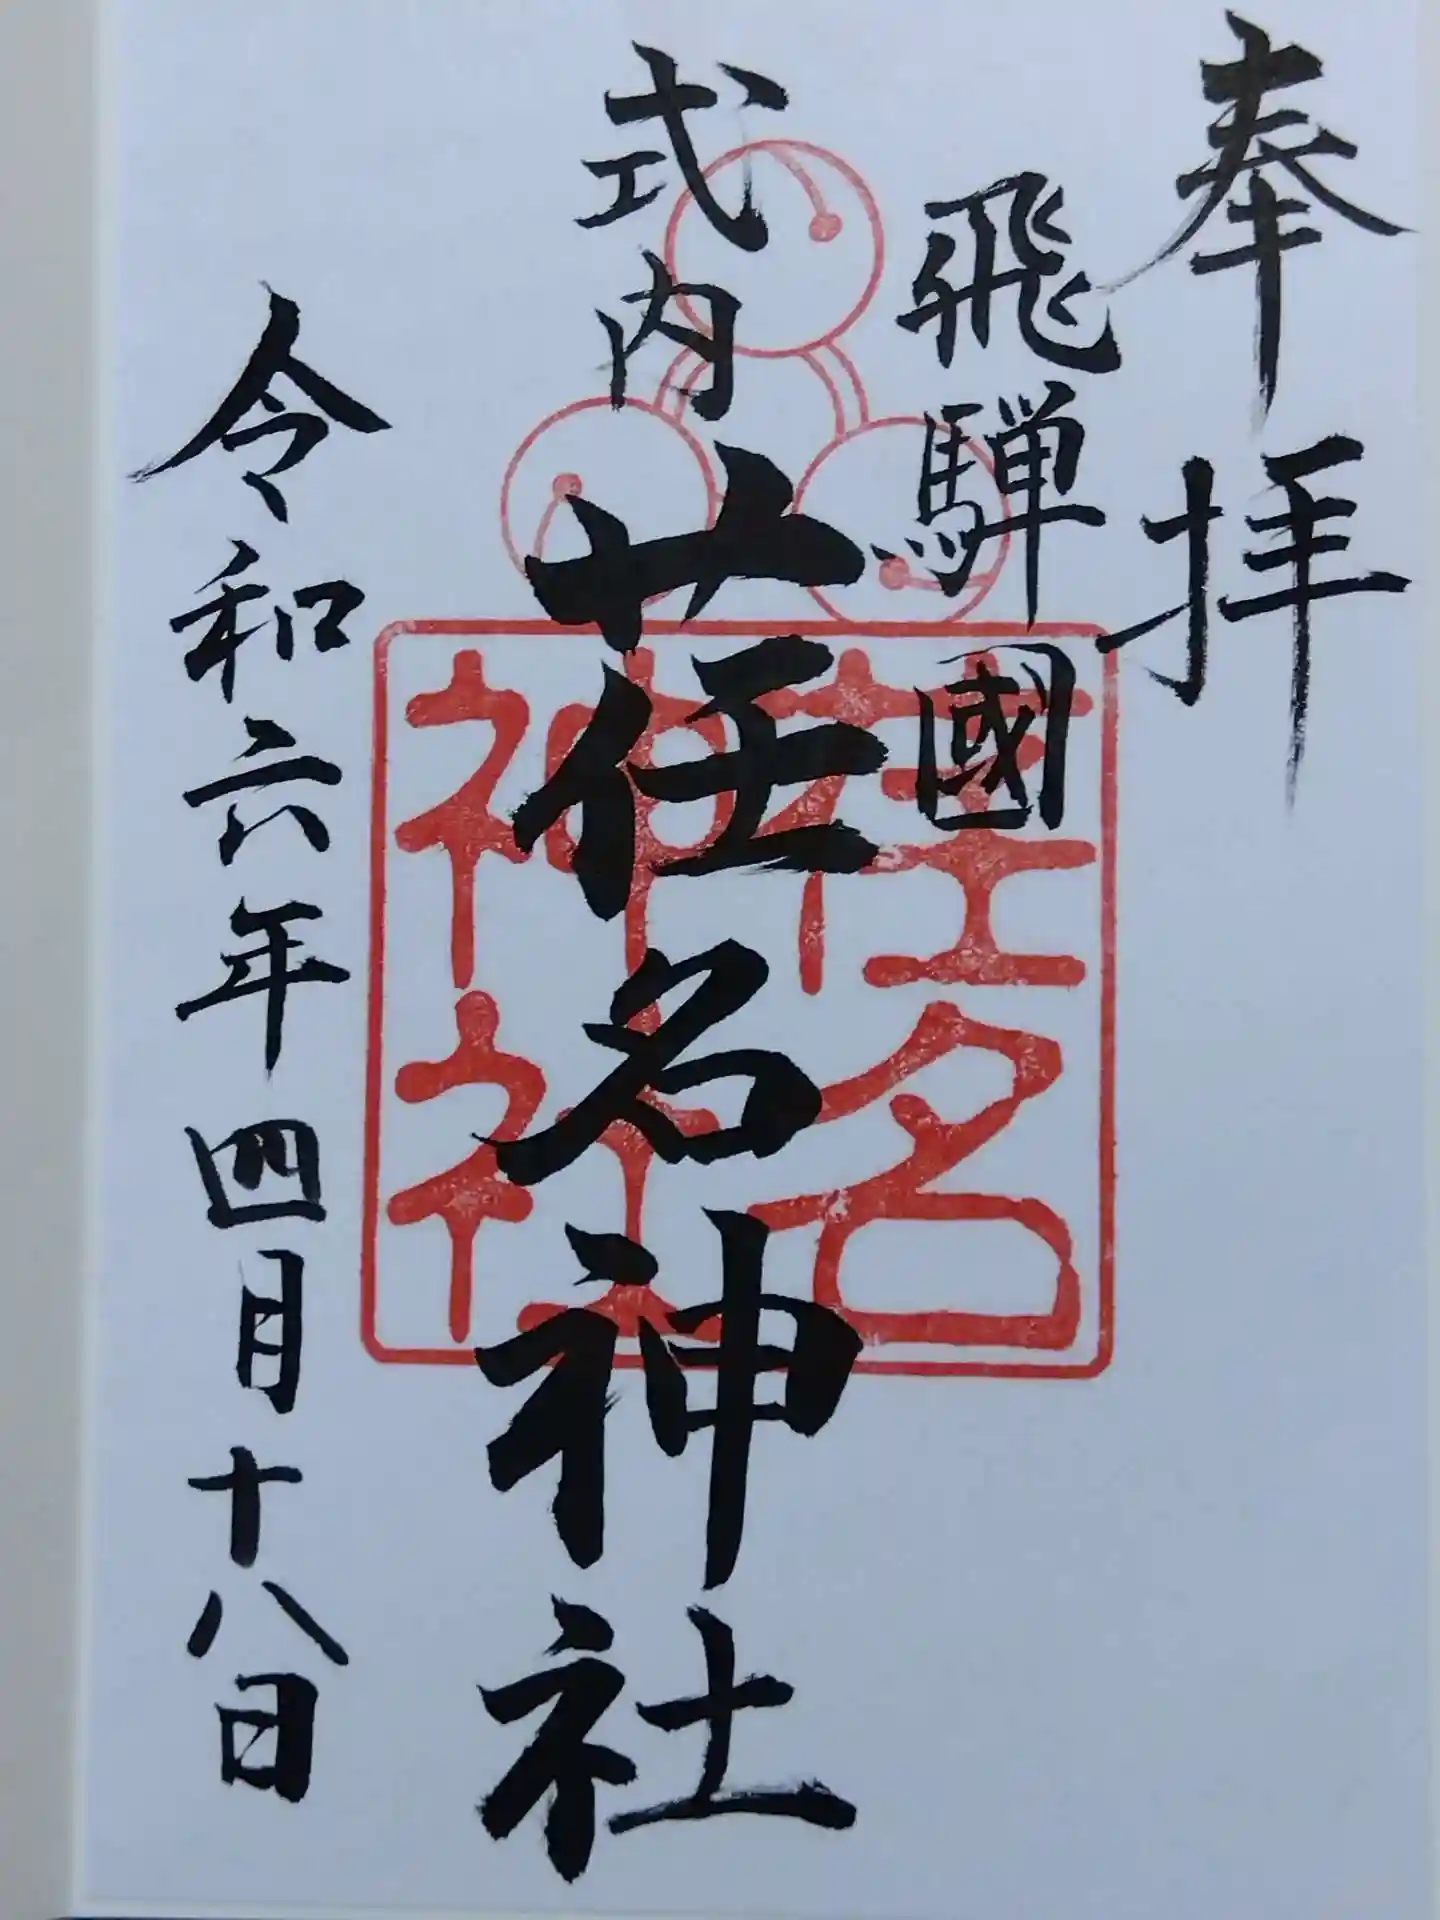 奉拝
飛騨國
式内 荏名神社
荏名
神社
令和六年四月十八日